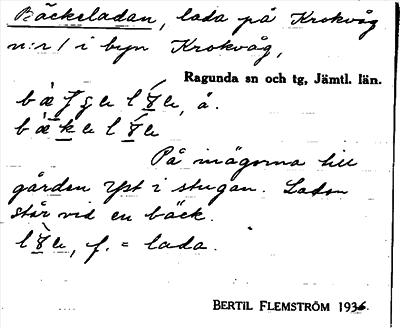 Bäckeladan, lada på Krokvåg
n:r 1 i byn Krokvåg,
Ragunda sn och tg, Jämtl. län.
På inägorna till
gården Yst i stugan. Ladan
står vid en bäck.
f. = lada.
BERTIL FLEMSTRÖM 1936.